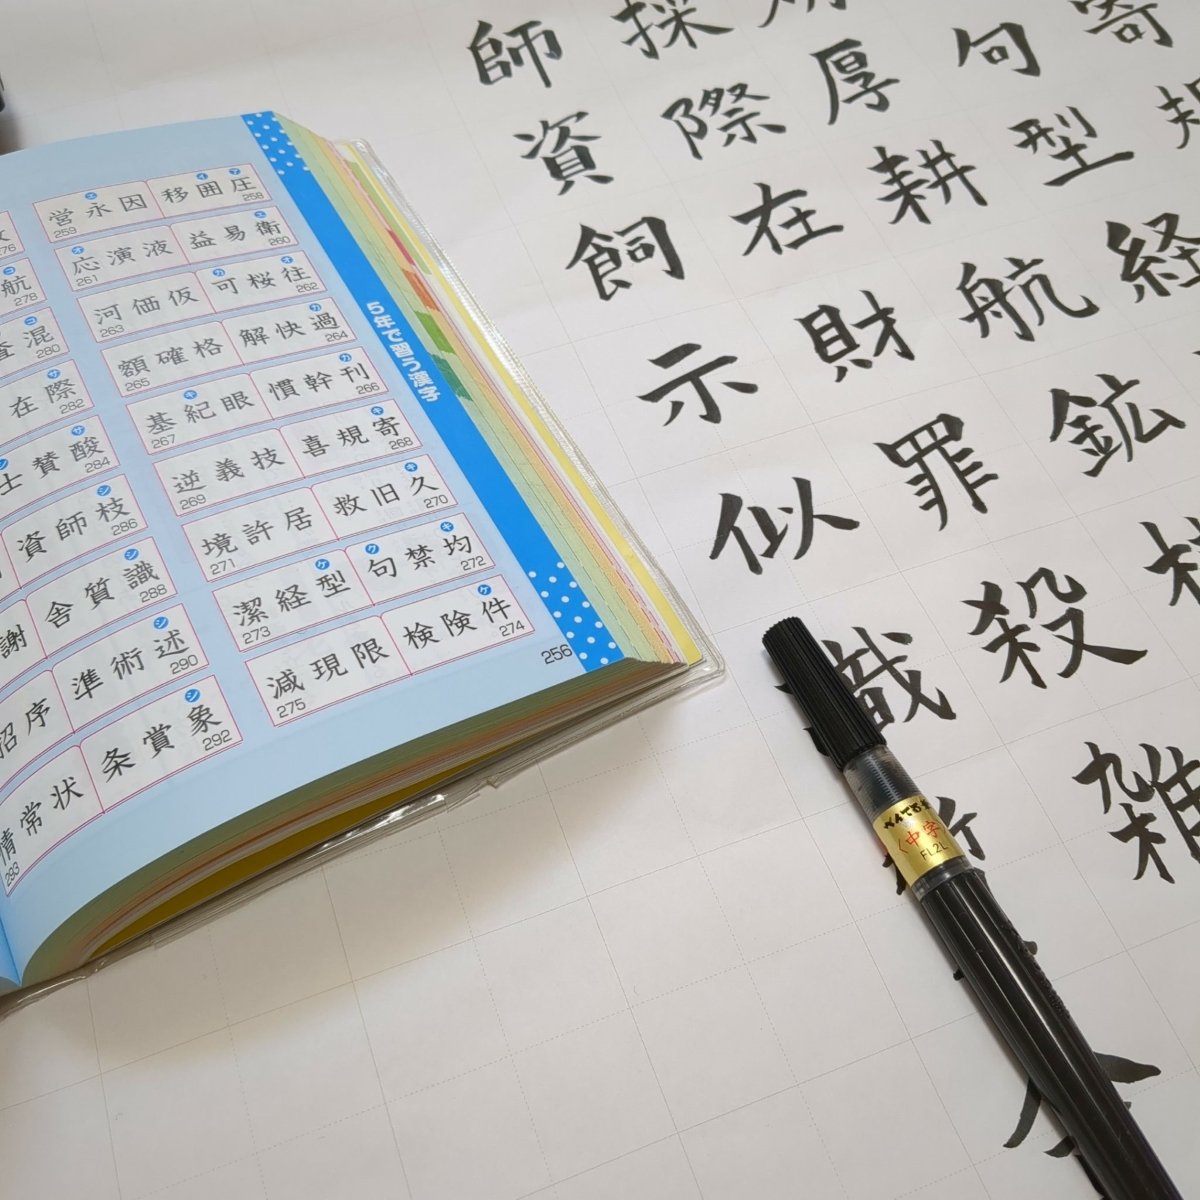 5年で習う漢字
圧囲移
258
因永営
259
衛易益
260
液演応
261
往桜可
262
仮価河
263
過快解
264
格確額
265
刊幹慣
266
眼紀基
267
寄規喜
268
技義逆
269
久旧救
270
居許境
271
均禁句
272
型経潔
273
件険検
274
限現減
275
276
航
278
混査
280
際在
282
酸賛士
284
枝師資
286
識質舎
288
謝
述術準
290
序招
象賞条
292
状常情
293
256
寄
規
経
句
型
航
鉱
厚
耕
財
罪
殺
雑
採
際
在
師
資
飼
示
似
識
ぺんてる筆
〈中字〉
FL2L